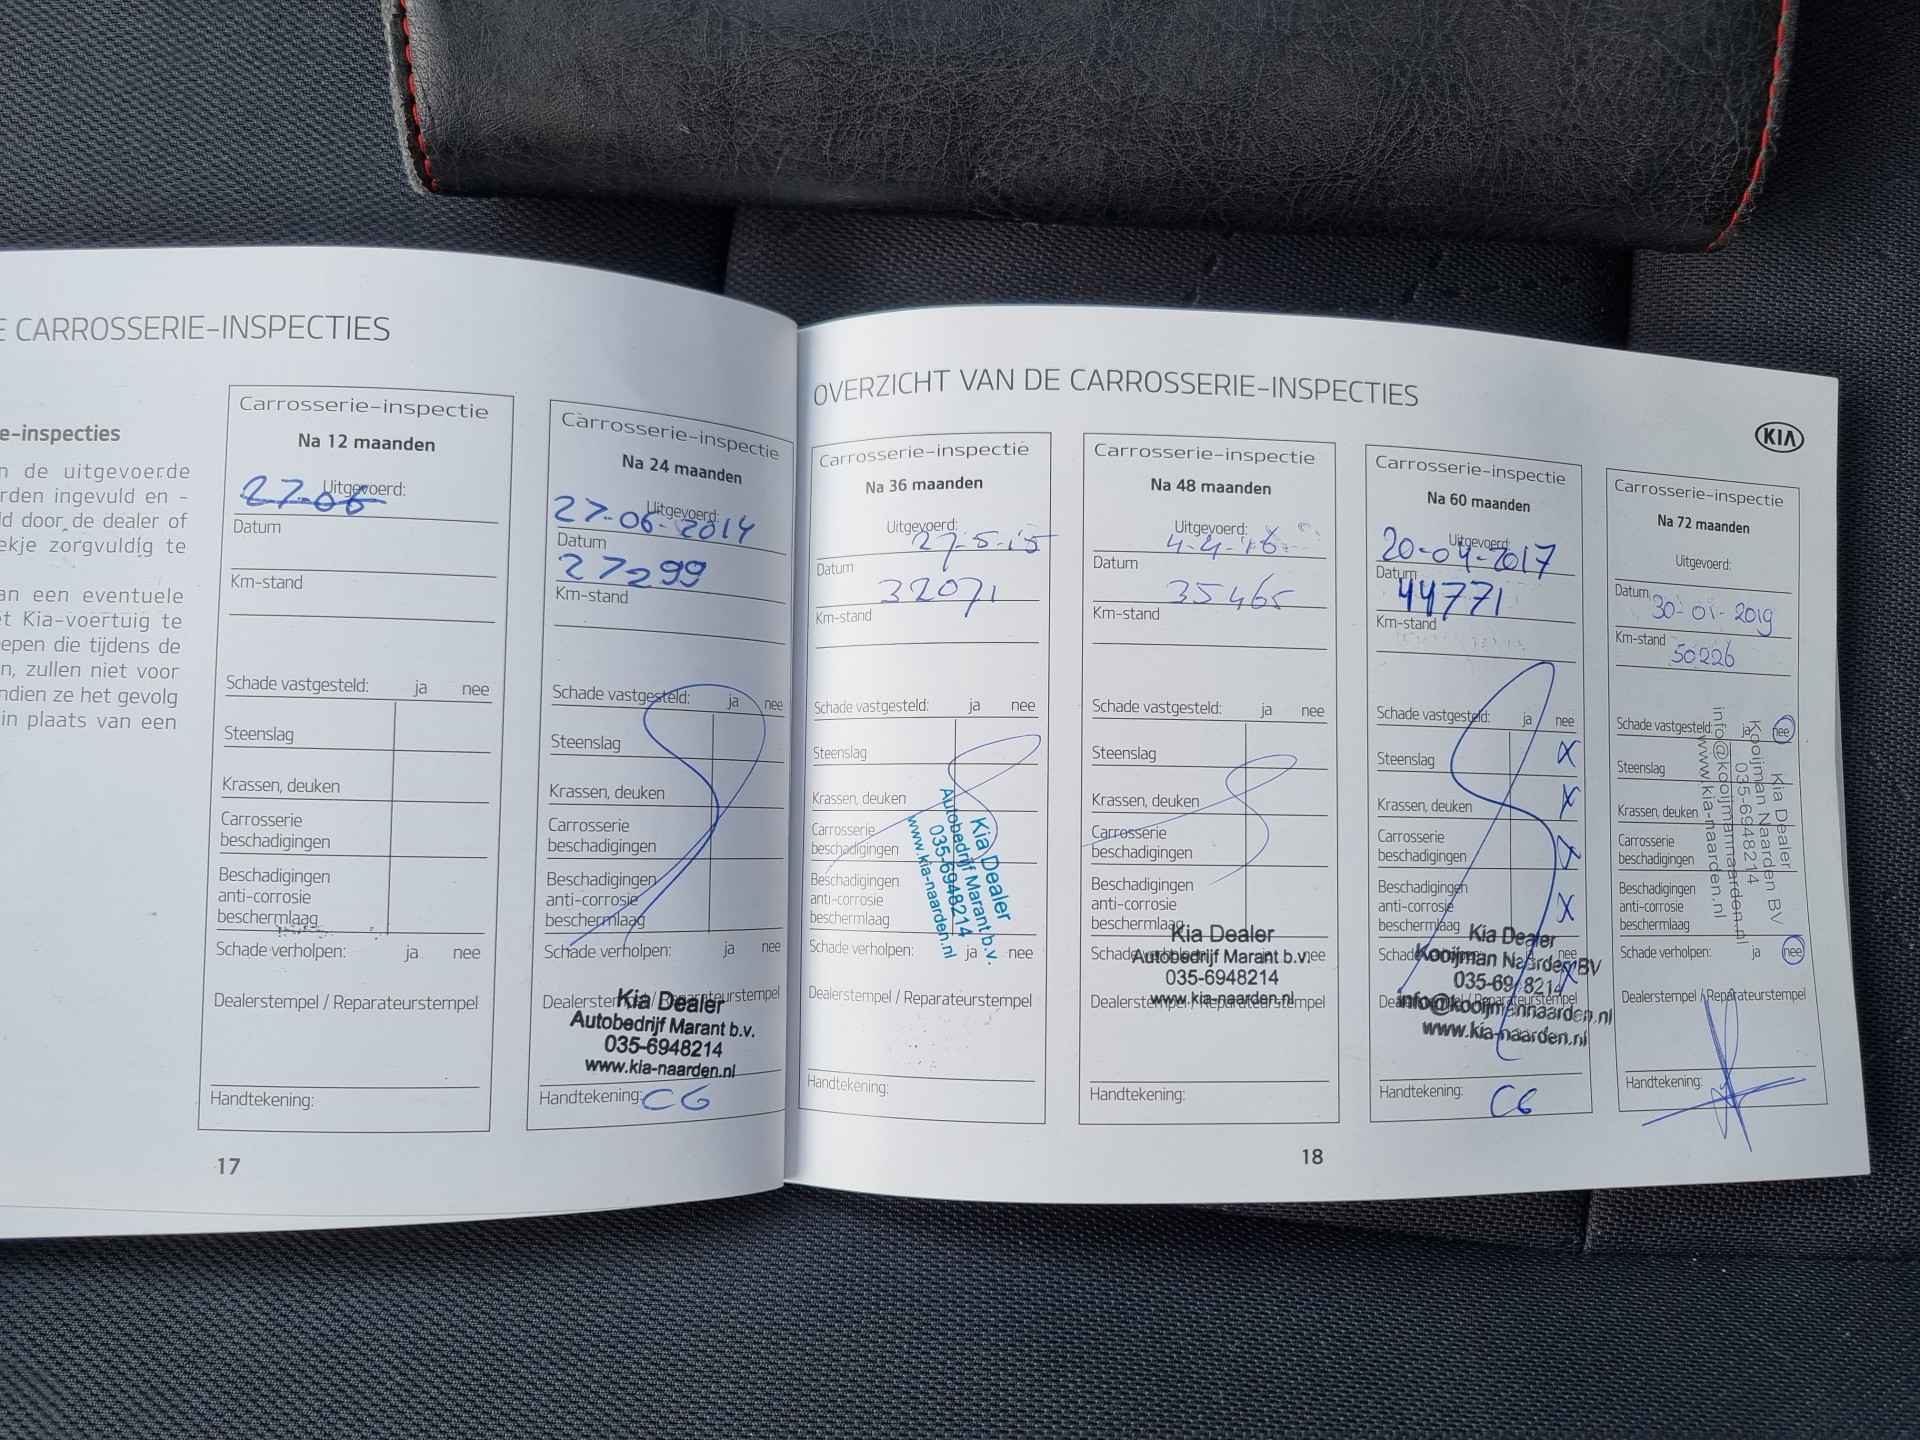 E CARROSSERIE-INSPECTIES
e-inspecties
n de uitgevoerde
rden ingevuld en -
ld door de dealer of
ekje zorgvuldig te
an een eventuele
et Kia-voertuig te
epen die tijdens de
n, zullen niet voor
ndien ze het gevolg
in plaats van een
Carrosserie-inspectie
Na 12 maanden
Uitgevoerd:
27-06
Datum
Km-stand
Schade vastgesteld: ja nee
Steenslag
Krassen, deuken
Carrosserie
beschadigingen
Beschadigingen
anti-corrosie
beschermlaag
Schade verholpen: ja nee
Dealerstempel / Reparateurstempel
Handtekening:
17
Carrosserie-inspectie
Na 24 maanden
Uitgevoerd:
27-06-2014
Datum
27299
Km-stand
Schade vastgesteld: ja nee
Steenslag
Krassen, deuken
Carrosserie
beschadigingen
Beschadigingen
anti-corrosie
beschermlaag
Schade verholpen: ja nee
Dealerstempel / Reparateurstempel
Kia Dealer
Autobedrijf Marant b.v.
035-6948214
www.kia-naarden.nl
Handtekening: CG
OVERZICHT VAN DE CARROSSERIE-INSPECTIES
KIA
Carrosserie-inspectie
Na 36 maanden
Uitgevoerd:
27-5-15
Datum
32071
Km-stand
Schade vastgesteld: ja nee
Steenslag
Krassen, deuken
Carrosserie
beschadigingen
Beschadigingen
anti-corrosie
beschermlaag
Schade verholpen: ja nee
Kia Dealer
Autobedrijf Marant b.v.
035-6948214
www.kia-naarden.nl
Dealerstempel / Reparateurstempel
Handtekening:
Carrosserie-inspectie
Na 48 maanden
Uitgevoerd:
4-4-16
Datum
35465
Km-stand
Schade vastgesteld: ja nee
Steenslag
Krassen, deuken
Carrosserie
beschadigingen
Beschadigingen
anti-corrosie
beschermlaag
Schade verholpen: ja nee
Dealerstempel / Reparateurstempel
Kia Dealer
Autobedrijf Marant b.v.
035-6948214
www.kia-naarden.nl
Handtekening:
Carrosserie-inspectie
Na 60 maanden
Uitgevoerd:
20-04-2017
Datum
44771
Km-stand
Schade vastgesteld: ja nee
Steenslag X
Krassen, deuken X
Carrosserie
beschadigingen X
Beschadigingen
anti-corrosie X
beschermlaag
Schade verholpen: ja nee X
Dealerstempel / Reparateurstempel
Kia Dealer
Kooijman Naarden BV
035-6948214
info@kooijmannaarden.nl
www.kia-naarden.nl
Handtekening: CG
Carrosserie-inspectie
Na 72 maanden
Uitgevoerd:
Datum 30-01-2019
Km-stand 50226
Schade vastgesteld: ja nee
Steenslag
Krassen, deuken
Carrosserie
beschadigingen
Beschadigingen
anti-corrosie
beschermlaag
Schade verholpen: ja nee
Kia Dealer
Kooijman Naarden BV
035-6948214
info@kooijmannaarden.nl
www.kia-naarden.nl
Dealerstempel / Reparateurstempel
Handtekening:
18